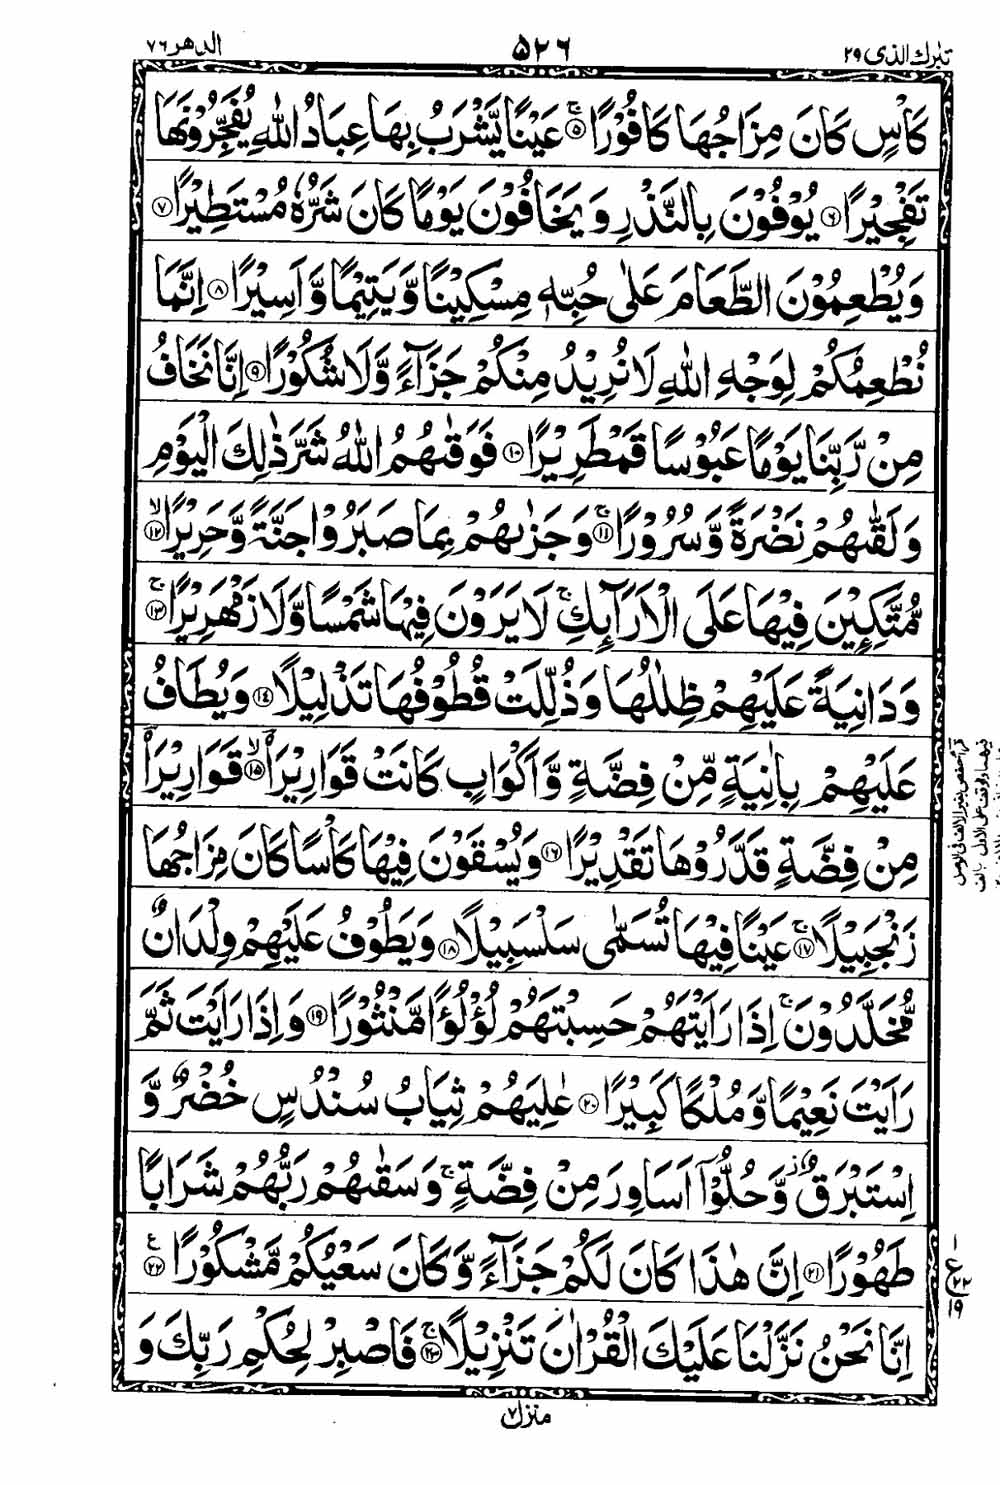 تبٰرك الذی ۲۹
۵۲۶
الدهر ۷۶
كَاْسٍ كَانَ مِزَاجُهَا كَافُوْرًا ۚ۝۵ عَيْنًا يَّشْرَبُ بِهَا عِبَادُ اللّٰهِ يُفَجِّرُوْنَهَا
تَفْجِيْرًا ۝۶ يُوْفُوْنَ بِالنَّذْرِ وَيَخَافُوْنَ يَوْمًا كَانَ شَرُّهٗ مُسْتَطِيْرًا ۝۷
وَيُطْعِمُوْنَ الطَّعَامَ عَلٰى حُبِّهٖ مِسْكِيْنًا وَّيَتِيْمًا وَّاَسِيْرًا ۝۸ اِنَّمَا
نُطْعِمُكُمْ لِوَجْهِ اللّٰهِ لَا نُرِيْدُ مِنْكُمْ جَزَآءً وَّلَا شُكُوْرًا ۝۹ اِنَّا نَخَافُ
مِنْ رَّبِّنَا يَوْمًا عَبُوْسًا قَمْطَرِيْرًا ۝۱۰ فَوَقٰىهُمُ اللّٰهُ شَرَّ ذٰلِكَ الْيَوْمِ
وَلَقّٰىهُمْ نَضْرَةً وَّسُرُوْرًا ۚ۝۱۱ وَجَزٰىهُمْ بِمَا صَبَرُوْا جَنَّةً وَّحَرِيْرًا ۙ۝۱۲
مُّتَّكِـِٕيْنَ فِيْهَا عَلَى الْاَرَآئِكِ ۚ لَا يَرَوْنَ فِيْهَا شَمْسًا وَّلَا زَمْهَرِيْرًا ۚ۝۱۳
وَدَانِيَةً عَلَيْهِمْ ظِلٰلُهَا وَذُلِّلَتْ قُطُوْفُهَا تَذْلِيْلًا ۝۱۴ وَيُطَافُ
عَلَيْهِمْ بِاٰنِيَةٍ مِّنْ فِضَّةٍ وَّاَكْوَابٍ كَانَتْ قَوَارِيْرَا۠ ۙ۝۱۵ قَوَارِيْرَا۠
مِنْ فِضَّةٍ قَدَّرُوْهَا تَقْدِيْرًا ۝۱۶ وَيُسْقَوْنَ فِيْهَا كَاْسًا كَانَ مِزَاجُهَا
زَنْجَبِيْلًا ۚ۝۱۷ عَيْنًا فِيْهَا تُسَمّٰى سَلْسَبِيْلًا ۝۱۸ وَيَطُوْفُ عَلَيْهِمْ وِلْدَانٌ
مُّخَلَّدُوْنَ ۚ اِذَا رَاَيْتَهُمْ حَسِبْتَهُمْ لُؤْلُؤًا مَّنْثُوْرًا ۝۱۹ وَاِذَا رَاَيْتَ ثَمَّ
رَاَيْتَ نَعِيْمًا وَّمُلْكًا كَبِيْرًا ۝۲۰ عٰلِيَهُمْ ثِيَابُ سُنْدُسٍ خُضْرٌ وَّ
اِسْتَبْرَقٌ ۡ وَّحُلُّوْۤا اَسَاوِرَ مِنْ فِضَّةٍ ۚ وَسَقٰىهُمْ رَبُّهُمْ شَرَابًا
طَهُوْرًا ۝۲۱ اِنَّ هٰذَا كَانَ لَكُمْ جَزَآءً وَّكَانَ سَعْيُكُمْ مَّشْكُوْرًا ۝۲۲ ع
اِنَّا نَحْنُ نَزَّلْنَا عَلَيْكَ الْقُرْاٰنَ تَنْزِيْلًا ۚ۝۲۳ فَاصْبِرْ لِحُكْمِ رَبِّكَ وَ
۱
ع ۲۲
۱۹
منزل ۷